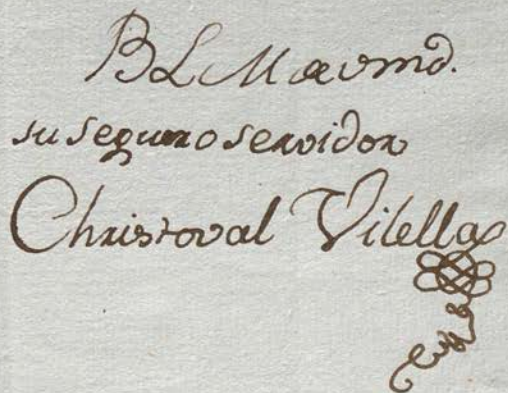 B L M a vmd.
su seguro servidor
Christoval Vilella